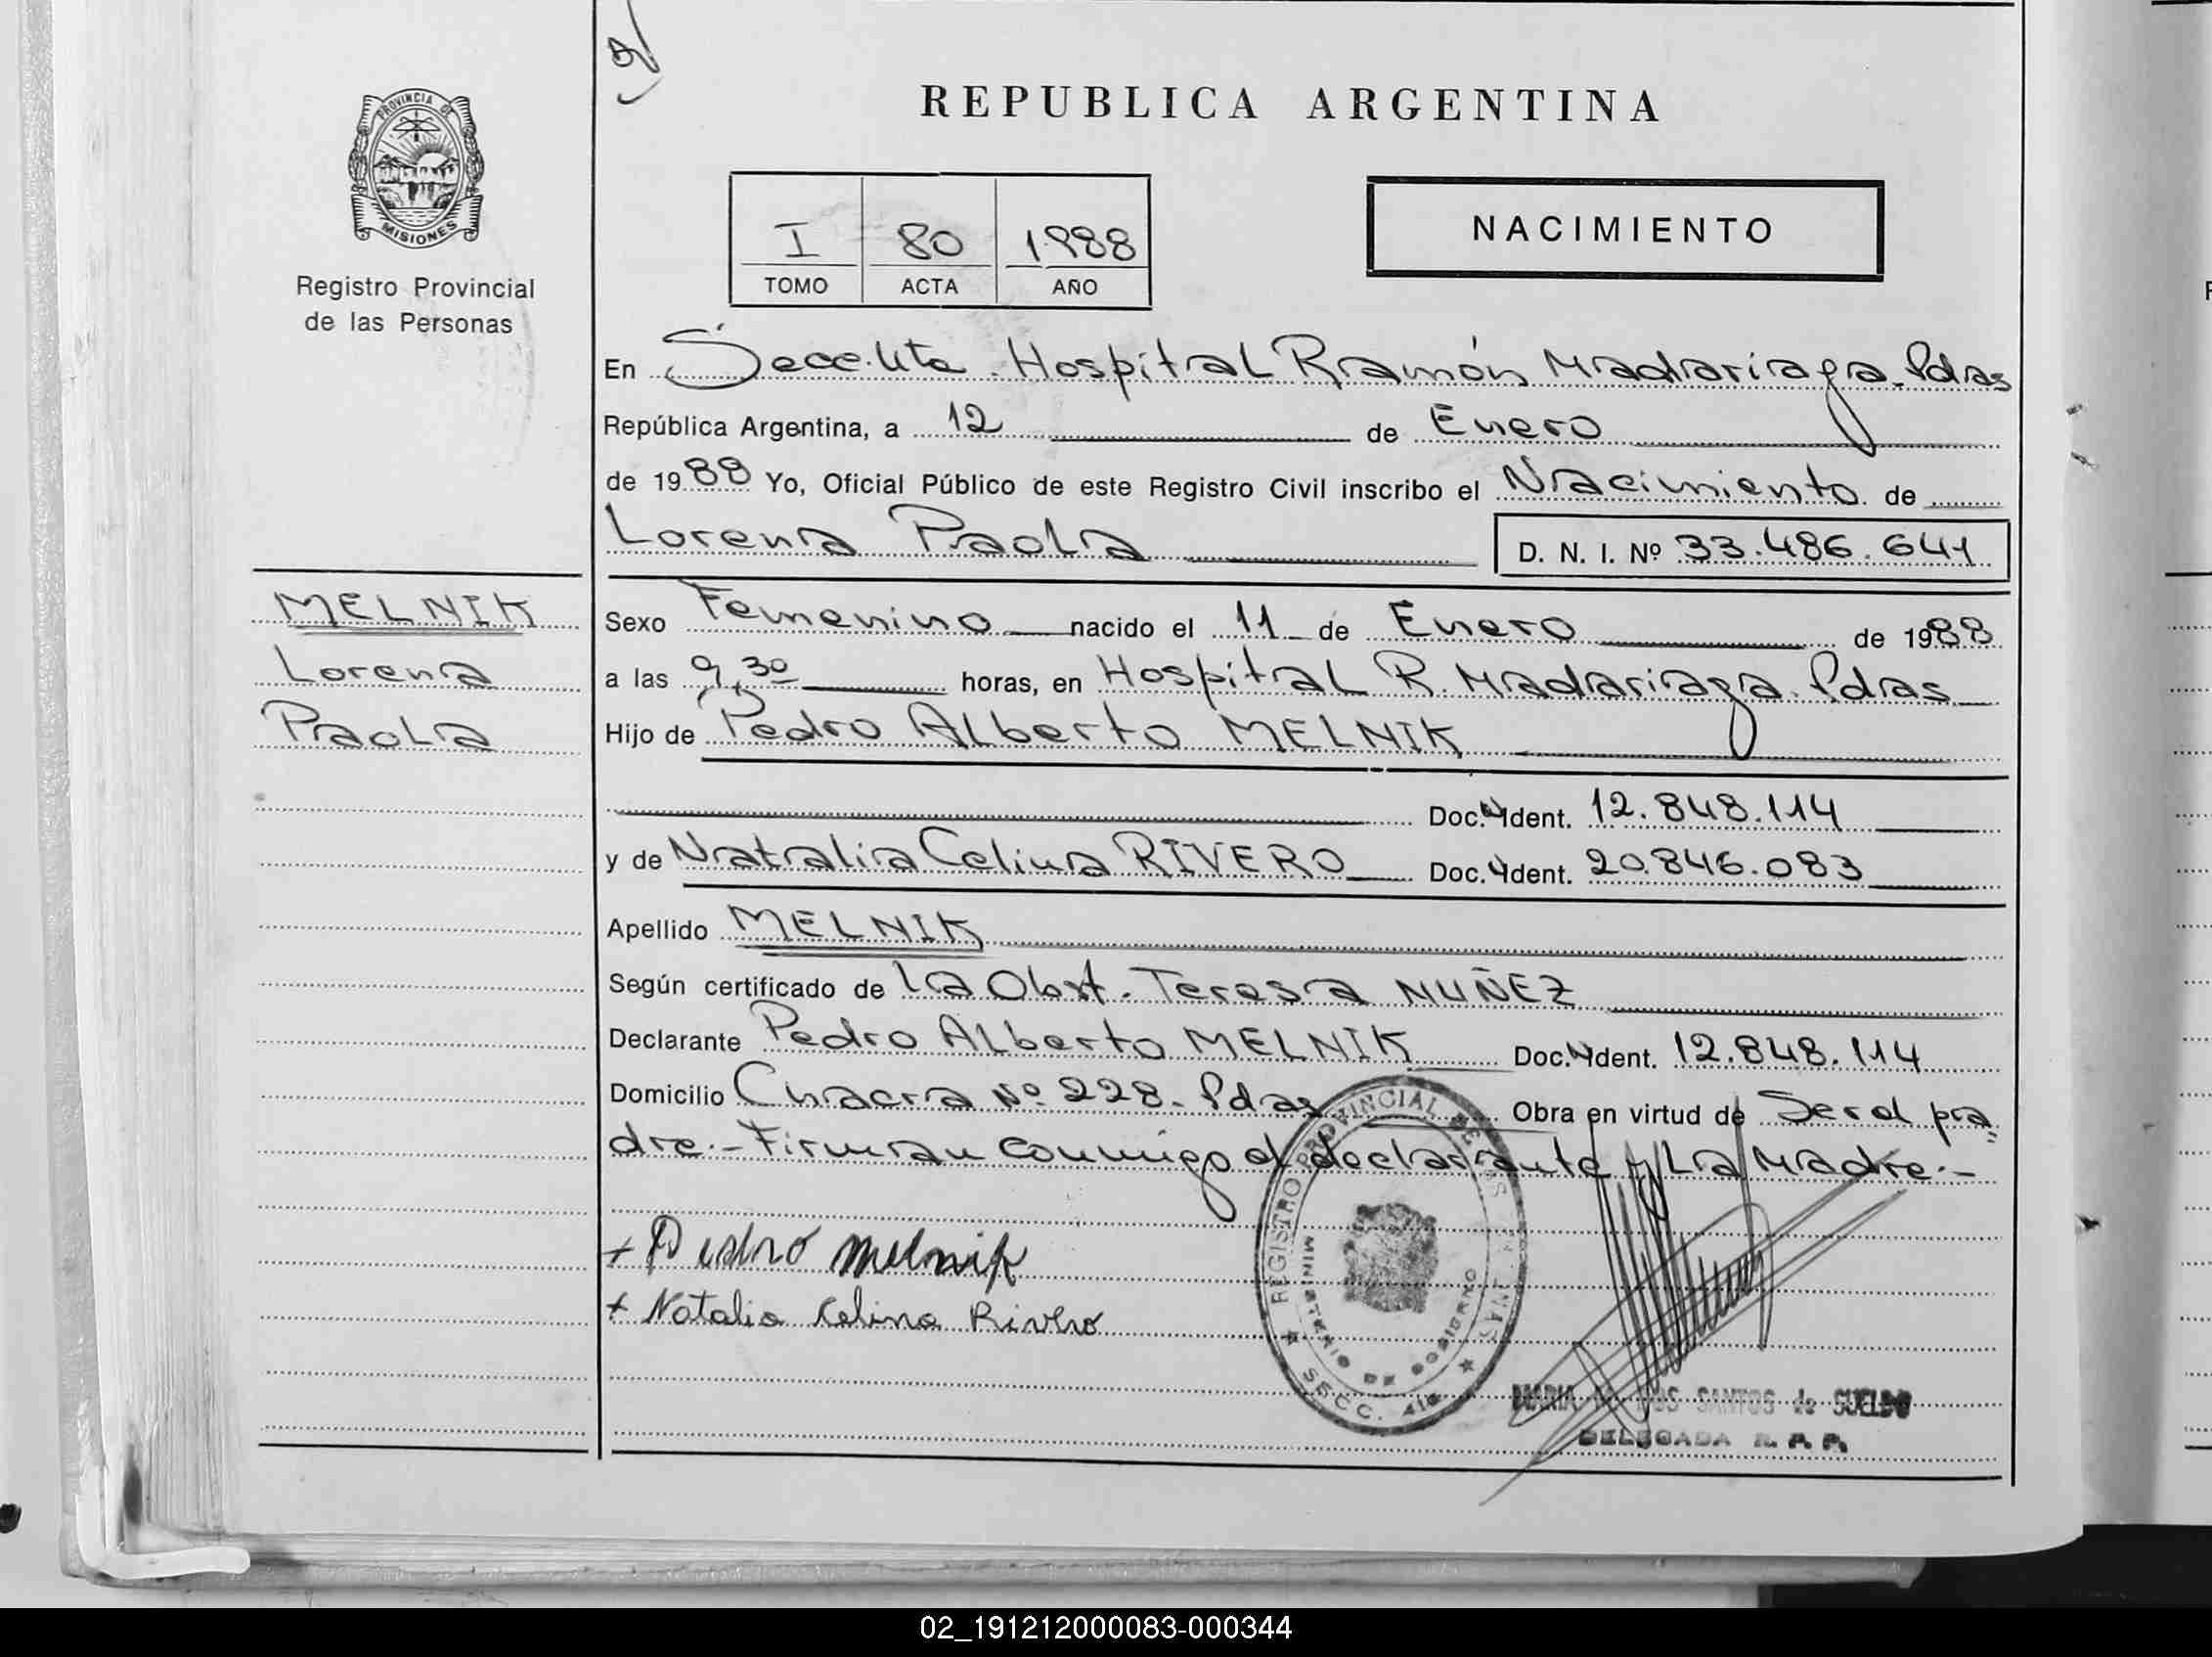 REPUBLICA ARGENTINA
PROVINCIA DE
MISIONES
Registro Provincial
de las Personas
I 80 1988
TOMO ACTA AÑO
NACIMIENTO
En Secc. 4ta. Hospital Ramón Madariaga. Pdas
República Argentina, a 12 de Enero
de 1988 Yo, Oficial Público de este Registro Civil inscribo el Nacimiento de
Lorena Paola
D. N. I. Nº 33.486.641
MELNIK
Lorena
Paola
Sexo Femenino nacido el 11 de Enero de 1988
a las 9,30 horas, en Hospital R. Madariaga. Pdas
Hijo de Pedro Alberto MELNIK
Doc. Ident. 12.848.114
y de Natalia Celina RIVERO Doc. Ident. 20.846.083
Apellido MELNIK
Según certificado de la Obst. Teresa NUÑEZ
Declarante Pedro Alberto MELNIK Doc. Ident. 12.848.114
Domicilio Chacra Nº 228. Pdas Obra en virtud de Ser el pa-
dre.- Firman conmigo el declarante y la Madre.-
+ Pedro Melnik
+ Natalia Celina Rivero
REGISTRO PROVINCIAL DE LAS
MINISTERIO DE GOBIERNO
SECC. 4ta
MARIA DOS SANTOS de SUELDO
DELEGADA R. P. P.
02_191212000083-000344